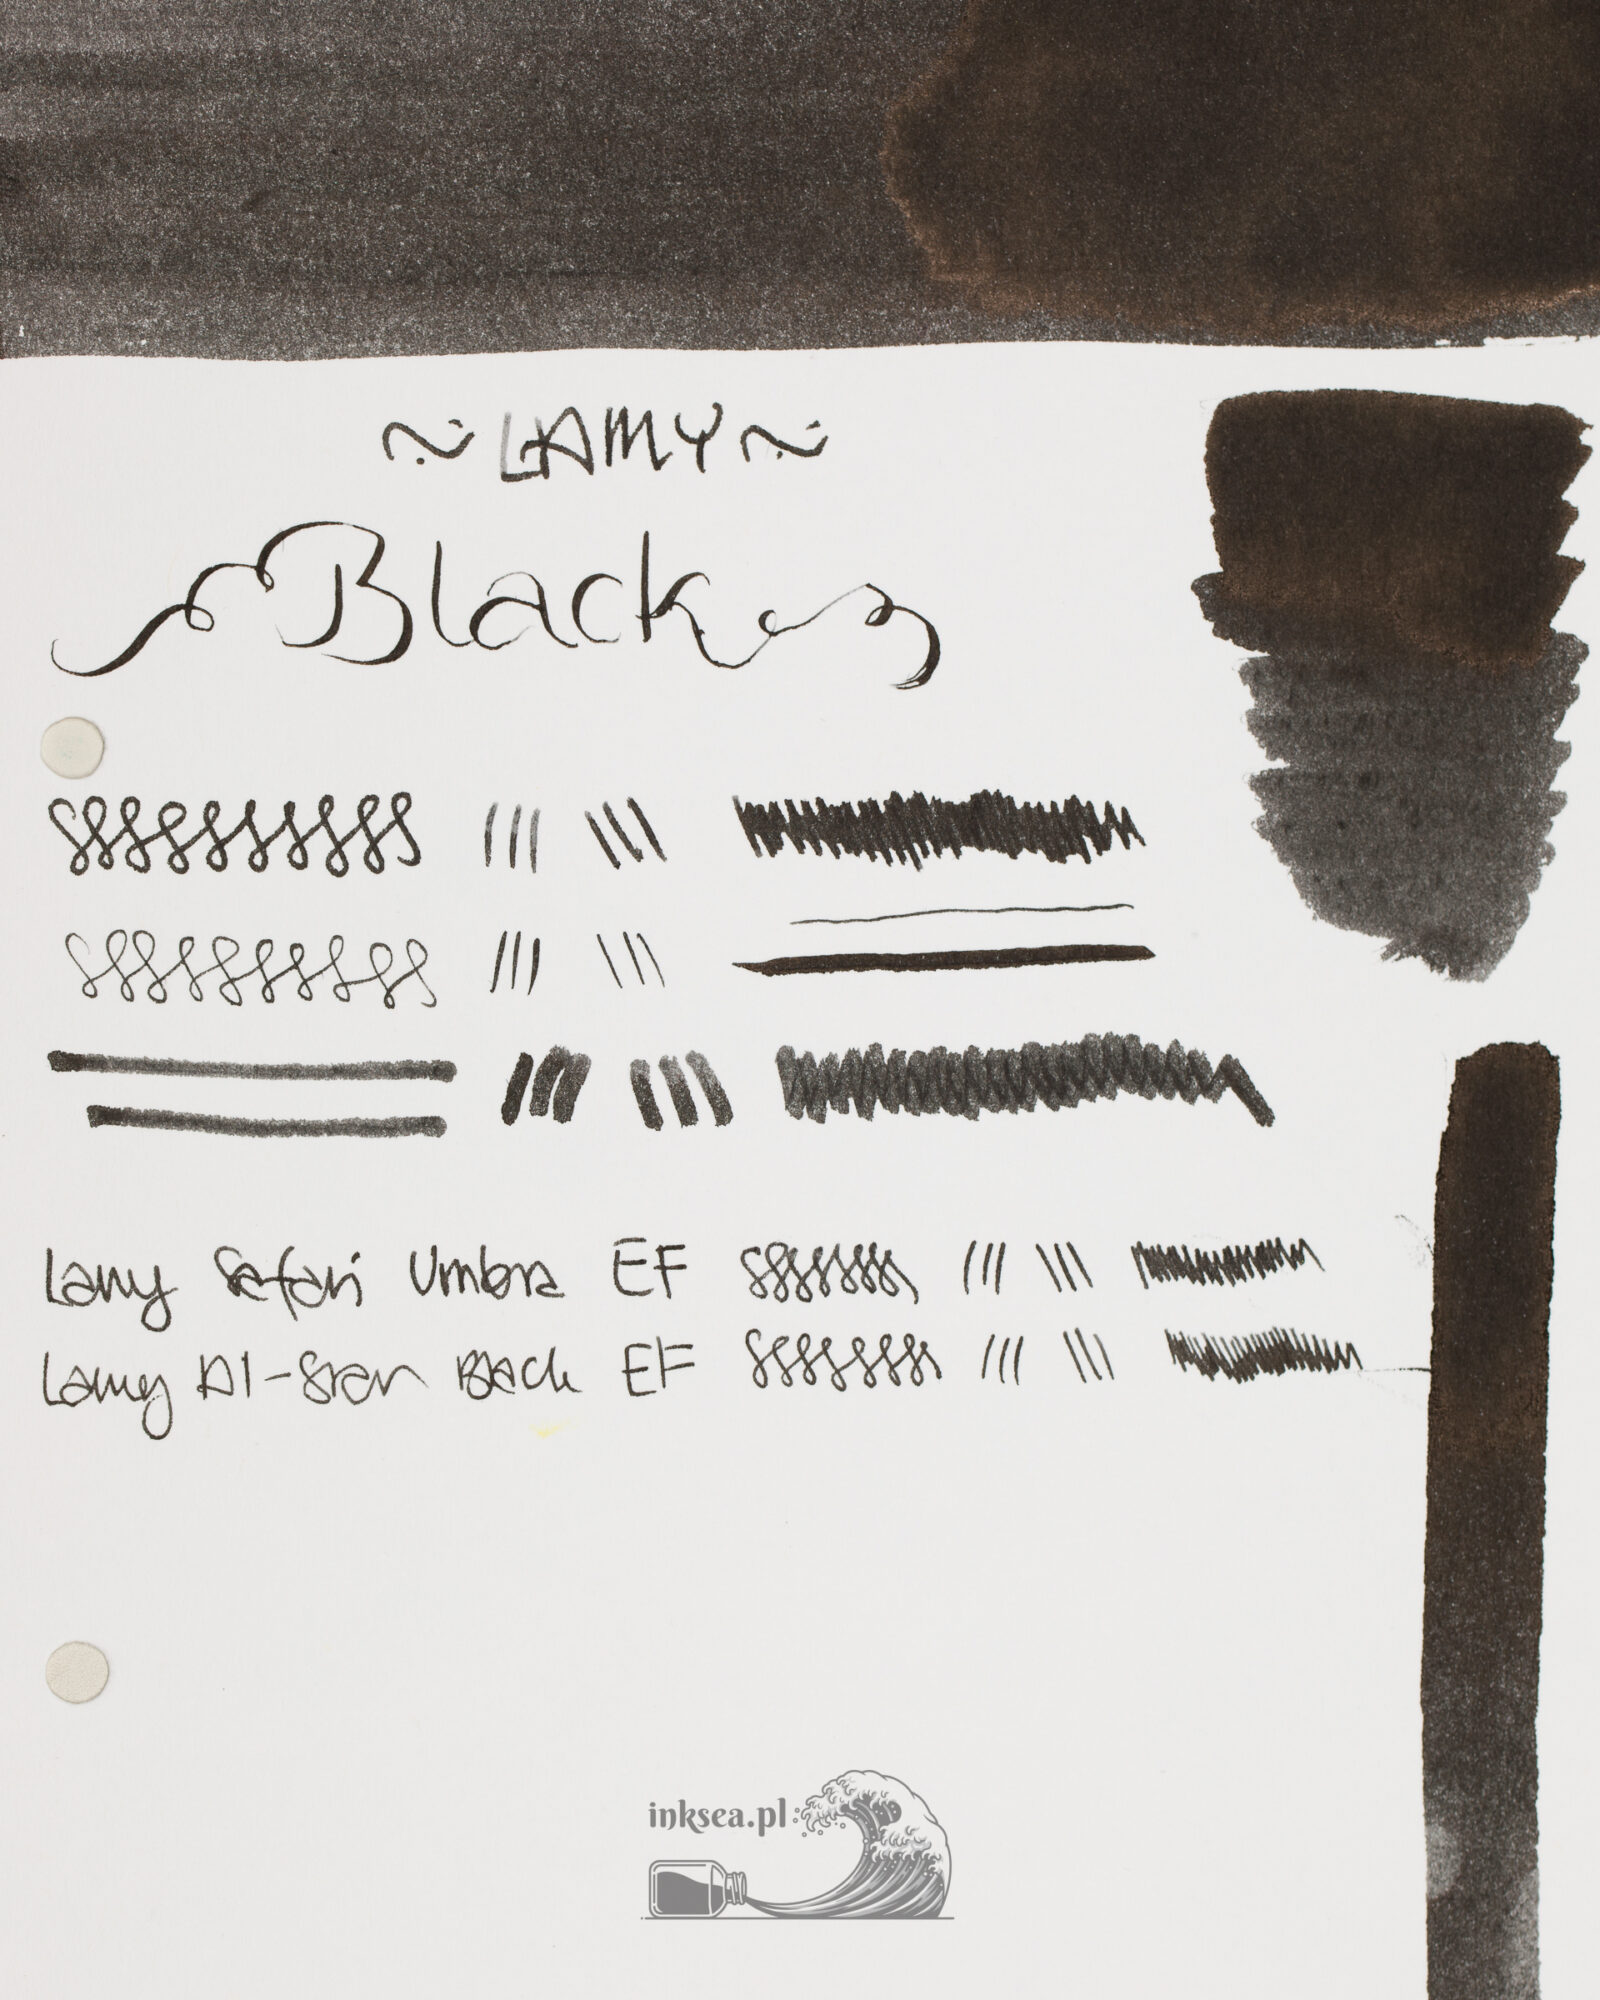 ~ LAMY ~
Black
Lamy Safari Umbra EF
Lamy Al-Star Black EF
inksea.pl